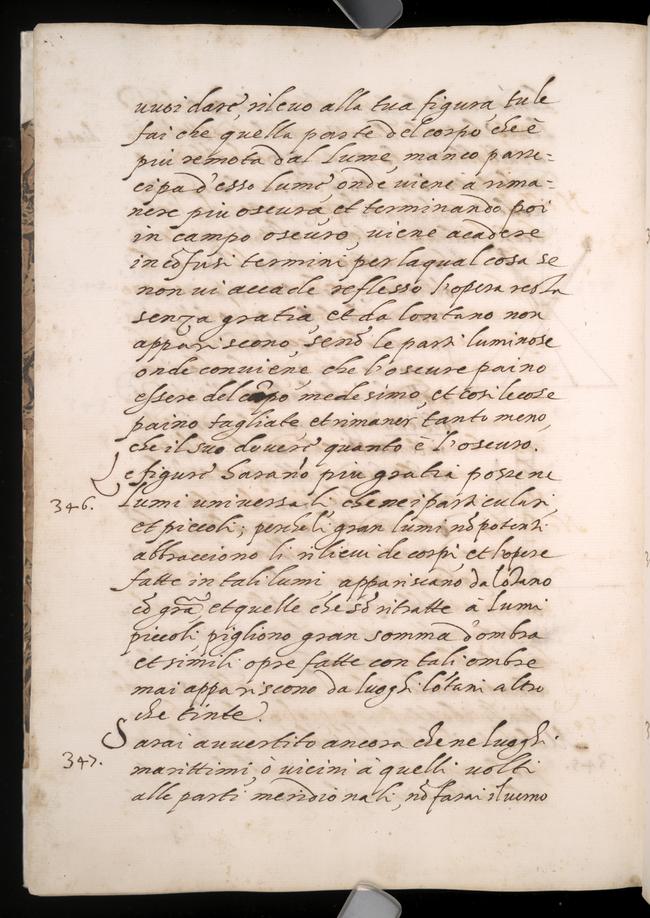 vuoi dare, rilevo alla tua figura, tu le
fai che quella parte del corpo che è
piu remota dal lume, manco parte-
cipa d'esso lume, onde viene a rima-
nere piu oscura, et terminando poi
in campo oscuro, viene acadere
in cōfusi termini per laqual cosa se
non vi accade reflesso l'opera resta
senza gratia, et da lontano non
appariscono, senō le parti luminose
onde conviene che l'oscure paino
essere del campo medesimo, et cosi le cose
paino tagliate et rimaner tanto meno,
che il suo dovere quanto è l'oscuro.
Le figure harano piu gratia poste ne
346. lumi universali che nei particulari
et piccoli; perche li gran lumi nō potenti
abbracciono li rilievi de corpi et l'opere
fatte in tali lumi appariscano da lōtano
cō gra, et quelle che sō ritratte à lumi
piccoli pigliono gran somma d'ombra
et simili opre fatte con tali ombre
mai appariscono da luoghi lōtani altro
che tinte.
Sarai avvertito ancora che ne luoghi
347. marittimi, ò vicini à quelli volti
alle parti meridionali, nō farai il verno